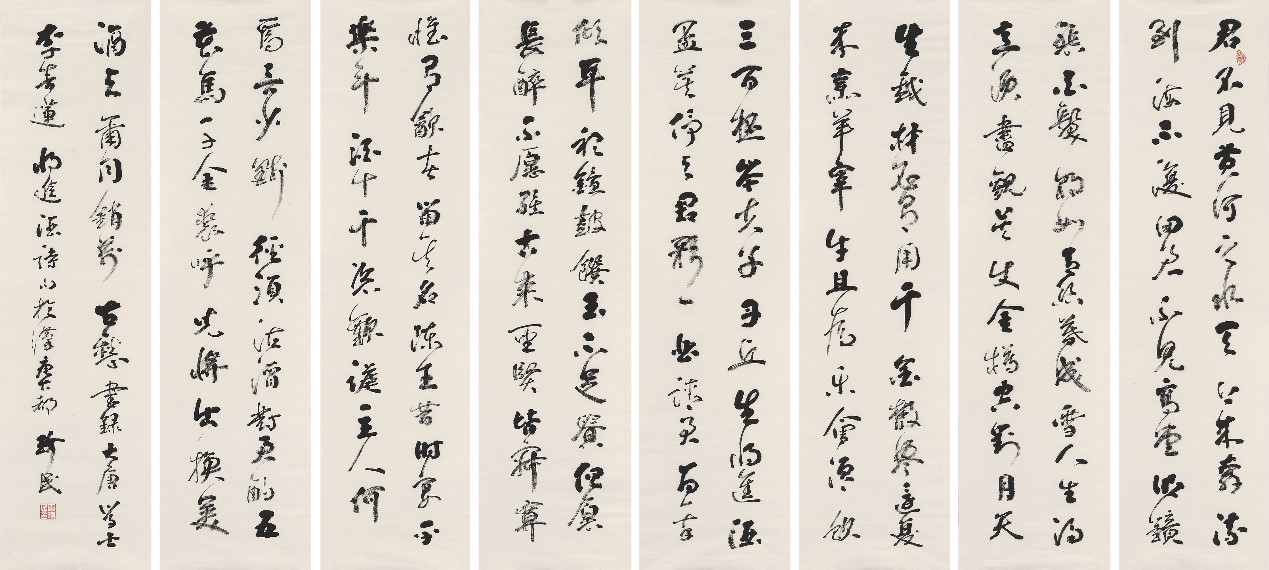 君不見黃河之水天上來奔流
到海不復回君不見高堂明鏡
悲白髮朝如青絲暮成雪人生得
意須盡歡莫使金樽空對月天
生我材必有用千金散盡還復
來烹羊宰牛且為樂會須一飲
三百杯岑夫子丹丘生將進酒
盃莫停與君歌一曲請君為我
傾耳聽鐘鼓饌玉不足貴但願
長醉不願醒古來聖賢皆寂寞
惟有飲者留其名陳王昔時宴平
樂斗酒十千恣歡謔主人何
為言少錢徑須沽酒對君酌五
花馬千金裘呼兒將出換美
酒與爾同銷萬古愁書錄大唐學士
李青蓮將進酒詩於漢唐都珍民